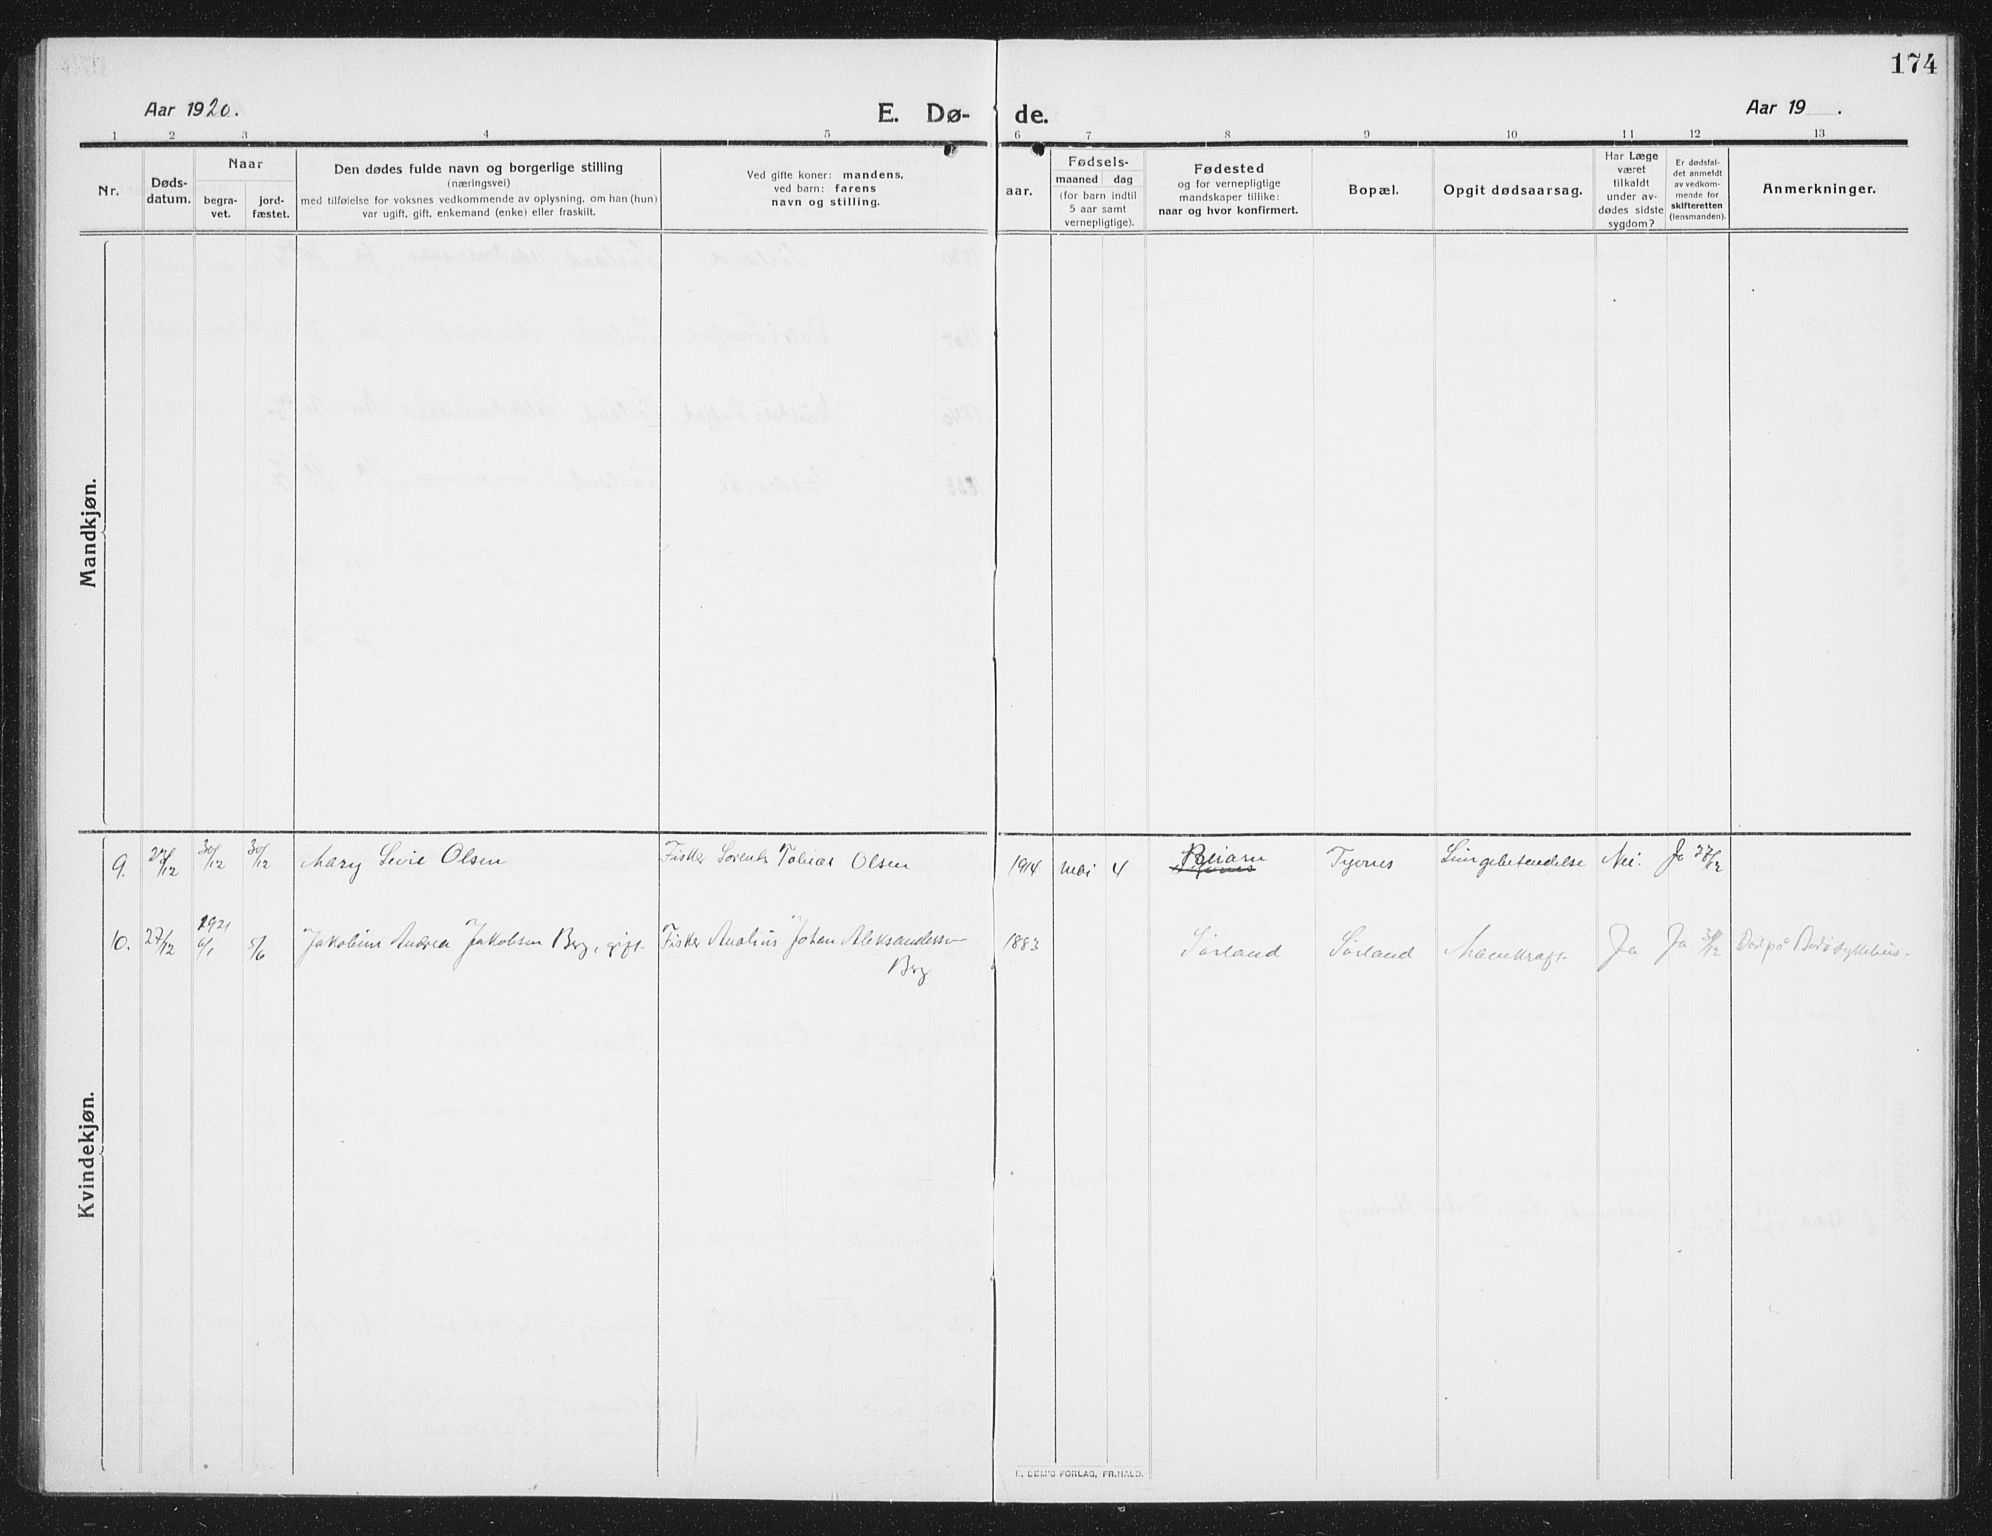 174
Aar 1920.
E. Dø- de.
Aar 19 .
1 2 3 4 5 6 7 8 9 10 11 12 13
Nr.
Døds-
datum.
Naar
begra-
vet.
jord-
fæstet.
Den dødes fulde navn og borgerlige stilling
(næringsvei)
med tilføielse for voksnes vedkommende av oplysning, om han (hun)
var ugift, gift, enkemand (enke) eller fraskilt.
Ved gifte koner: mandens,
ved barn: farens
navn og stilling.
aar.
Fødsels-
maaned dag
(for barn indtil
5 aar samt
vernepligtige).
Fødested
og for vernepligtige
mandskaper tillike:
naar og hvor konfirmert.
Bopæl.
Opgit dødsaarsag.
Har Læge
været
tilkaldt
under av-
dødes sidste
sygdom?
Er dødsfal-
det anmeldt
av vedkom-
mende for
skifteretten
(lensmanden).
Anmerkninger.
Mandkjøn.
Kvindekjøn.
9. 30/12 30/12 Mary Olsen Fisker Tobias Olsen 1914 mai 4 Beiarn Nei. Ja 27/12
10. 27/12 1921 6/1 5/6 Andrea Jakobsen Berg, gift Fisker Analius Johan Aleksandersen Berg 1883 Sørland Sørland Mavekræft Ja Ja Død på Bodø sykehus.
E. SEM'S FORLAG, FR.HALD.